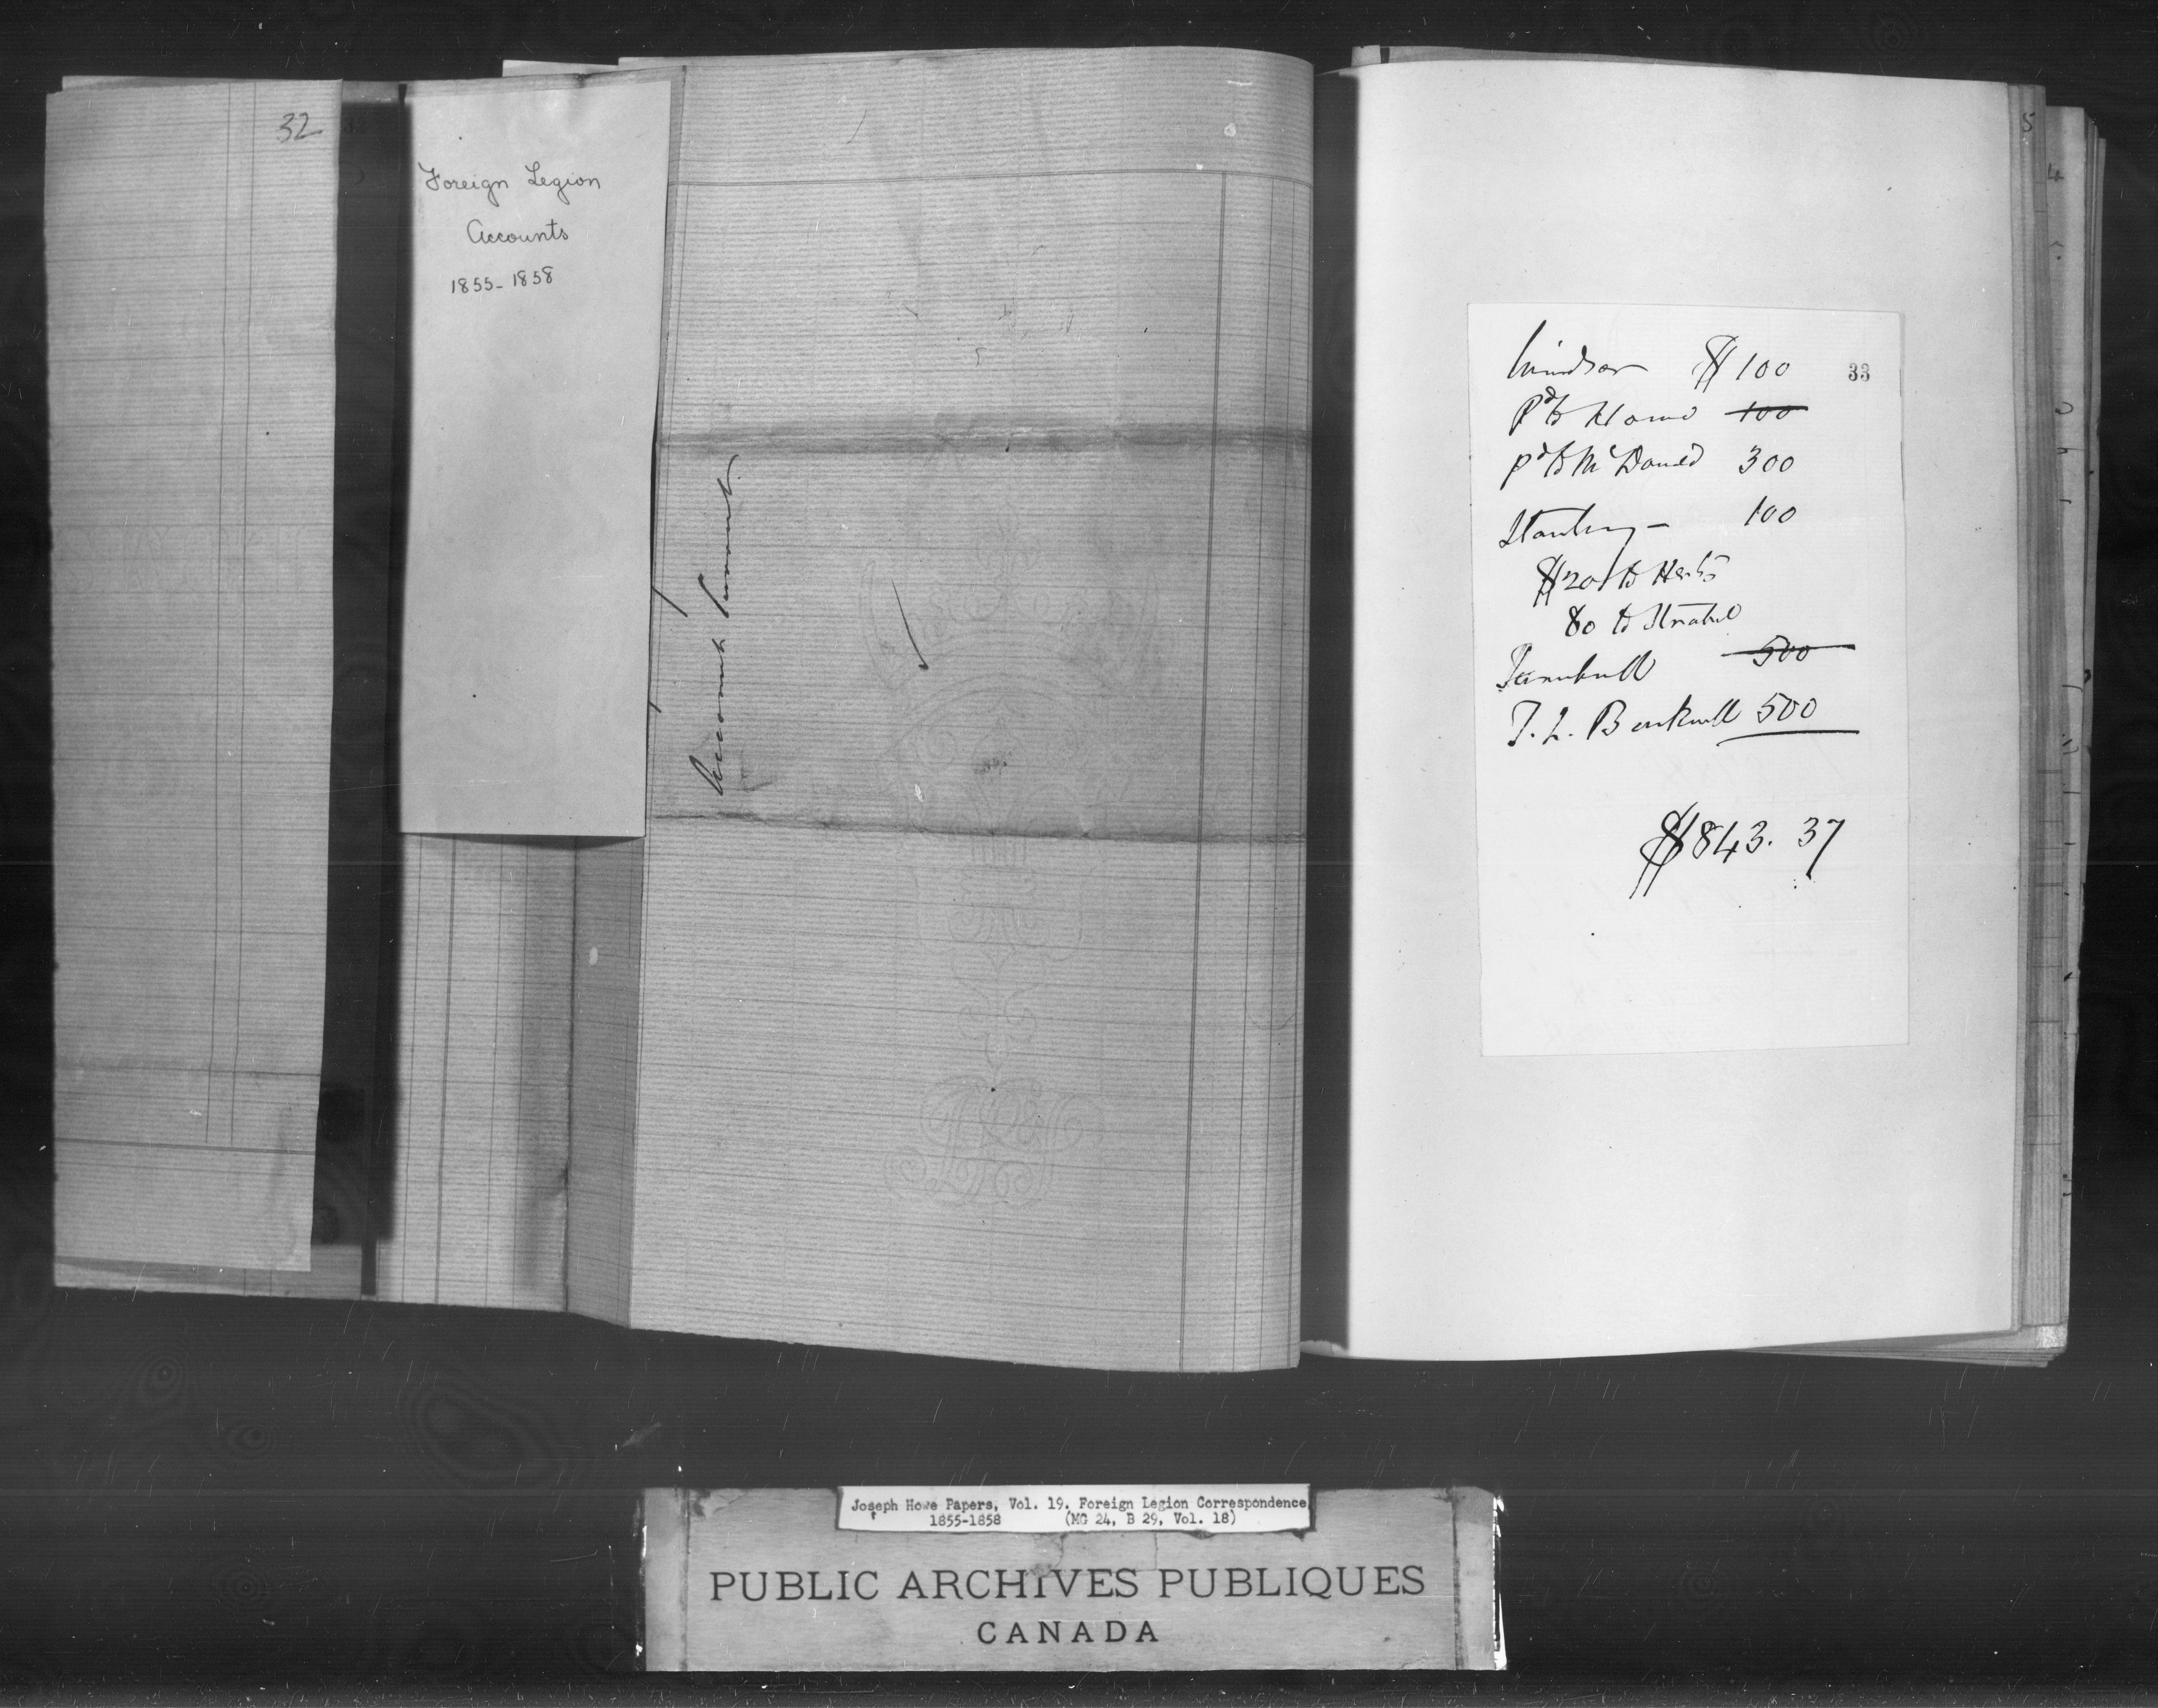 32
Foreign Legion
Accounts
1855-1858
Account Current
Windsor $100
33
Pd to Howe 100
pd to McDonald 300
100
$20 to
80 to Strobel
Turnbull 500
T. L. 500
$843.37
Joseph Howe Papers, Vol. 19. Foreign Legion Correspondence
1855-1858 (MG 24, B 29, Vol. 18)
PUBLIC ARCHIVES PUBLIQUES
CANADA